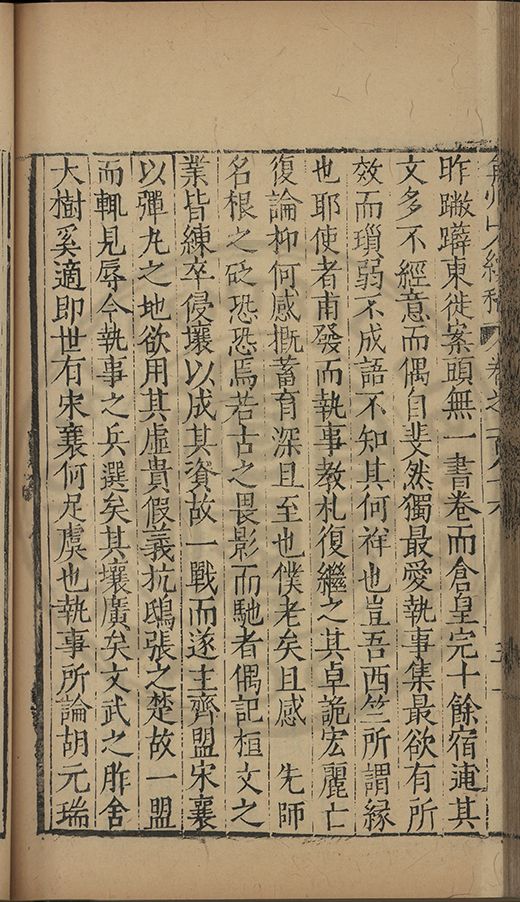 人續稿 卷之
昨蹩躠東徙案頭無一書卷而倉皇完十餘宿逋其
文多不經意而偶自斐然獨最愛執事集最欲有所
效而瑣弱不成語不知其何祥也豈吾西竺所謂縁
也耶使者南發而執事教札復繼之其卓詭宏麗亡
復論抑何感慨蓄育深且至也僕老矣且感 先師
名根之砭恐恐焉若古之畏影而馳者偶記桓文之
業皆練卒侵壤以成其資故一戰而遂主齊盟宋襄
以彈丸之地欲用其虛貴假義抗鴟張之楚故一盟
而輒見辱今執事之兵選矣其壤廣矣文武之胙舍
大樹奚適即世有宋襄何足虞也執事所論胡元瑞